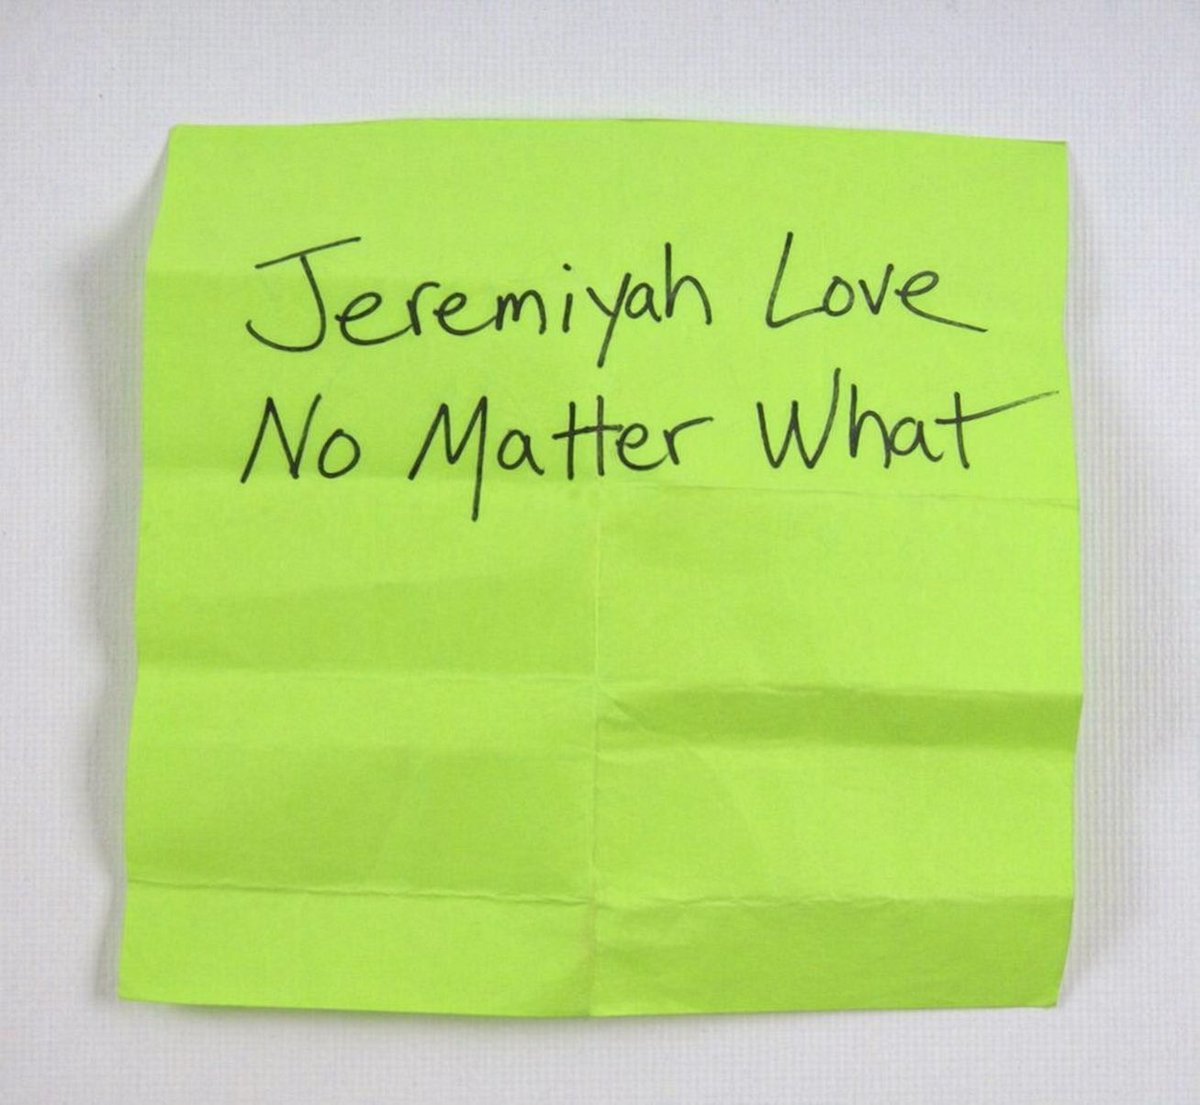 Jeremiyah Love
No Matter What